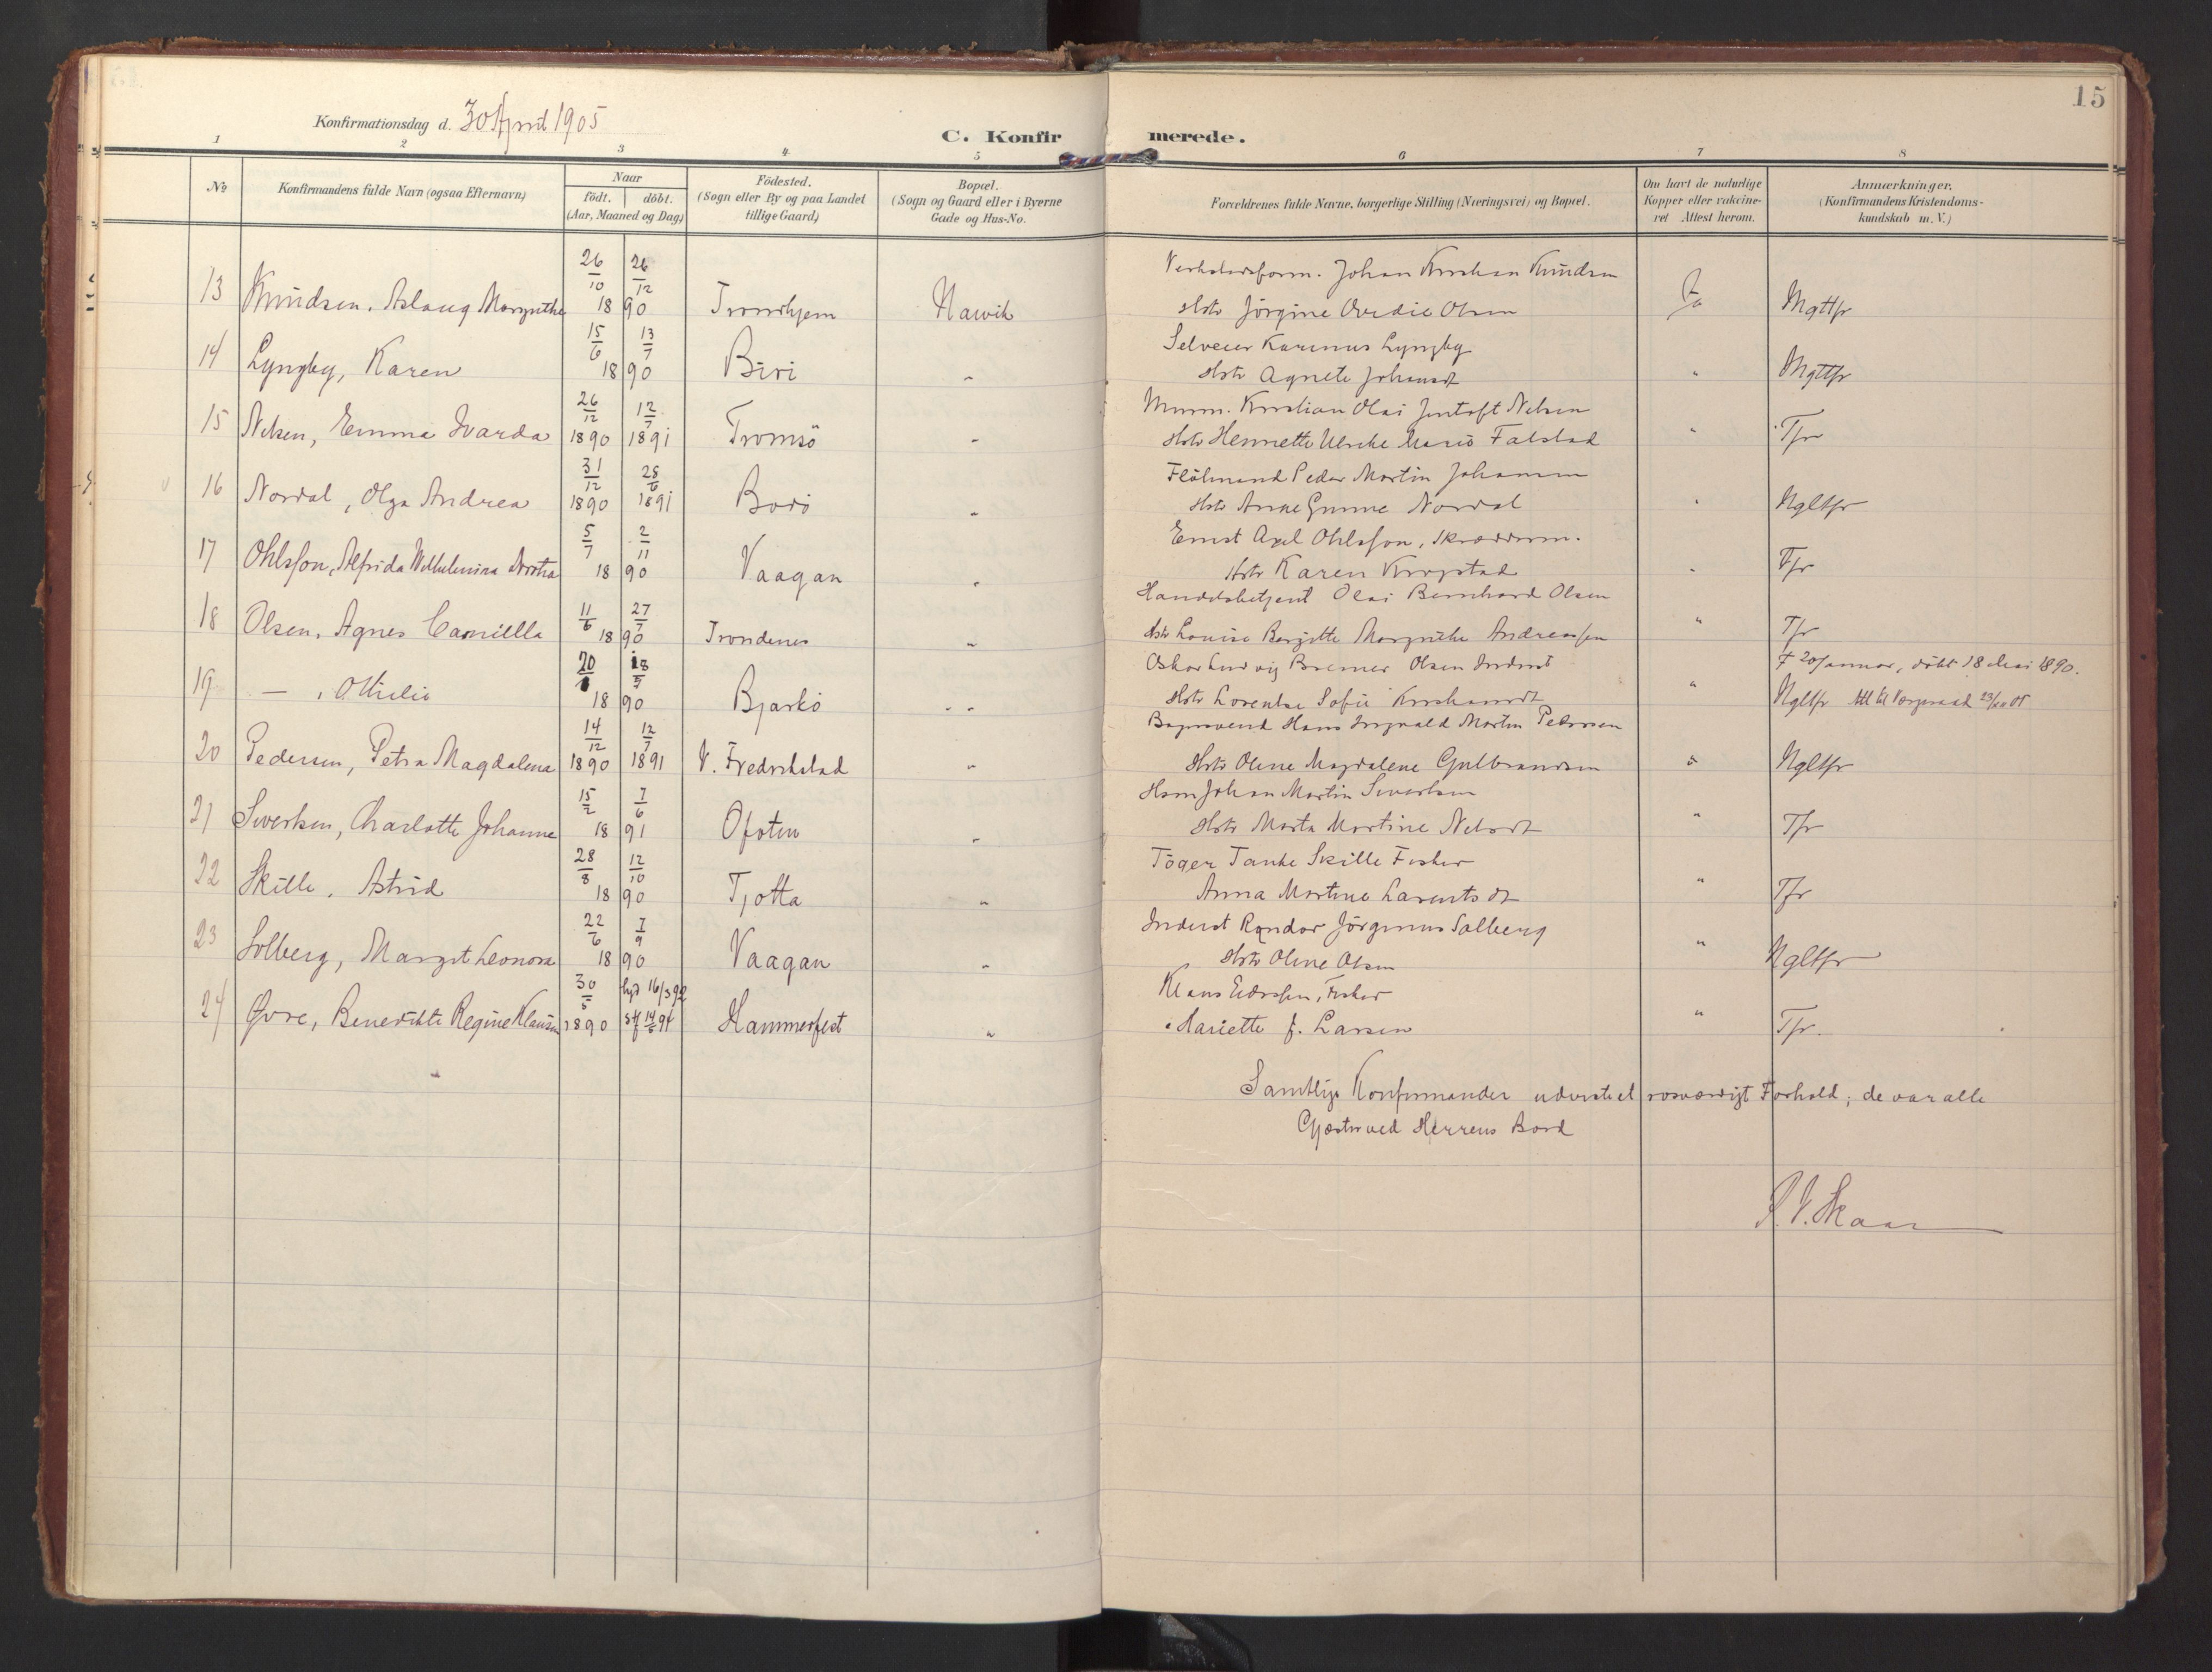 15
Konfirmationsdag d. 30 April 1905
C. Konfirmerede.
1 2 3 4 5 6 7 8
№
Konfirmandens fulde Navn (ogsaa Efternavn)
Naar
födt. döbt.
(Aar, Maaned og Dag)
Födested.
(Sogn eller By og paa Landet
tillige Gaard)
Bopæl.
(Sogn og Gaard eller i Byerne
Gade og Hus-No.
Forældrenes fulde Navne, borgerlige Stilling (Næringsvei) og Bopæl.
Om havt de naturlige
Kopper eller vakcine-
ret Attest herom.
Anmærkninger.
(Konfirmandens Kristendoms-
kundskab m. V.)
26/10 26/12 Johan Kristian Knudsen
13 Knudsen, Aslaug Margrethe 1890 Trondhjem Narvik Hstr Jörgine Ovedie Olsen Ja Mgttfr
15/6 13/7 Selveier Karenus Lyngby
14 Lyngby, Karen 1890 Biri " Hstr Agnete Johansdt " Mgttfr
26/12 12/7 Murm. Kristian Olai Jentoft Nelsen
15 Nelsen, Emma Ivarda 1890 1891 Tromsö " Hstr Henrette Ulrike Marie Falstad " Tfr
31/12 28/6 Peder Martin Johansen
16 Nordal, Olga Andrea 1890 1891 Bodö " Hstr Anne Nordal " Ngltfr
5/7 2/11 Ernst Axel Ohlsson, Skrædderm.
17 Ohlsson, Alfrida Wilhelmina 1890 Vaagan " Hstr Karen " Tfr
11/6 27/7 Handelsbetjent Olai Bernhard Olsen
18 Olsen, Agnes Camilla 1890 Trondenes " Hstr Louise Bergitte Margrethe Andreassen " Tfr
20/1 18/5 Oskar Ludvig Bremer Olsen Inderst f 20 Januar, döbt 18 Mai 1890.
19 — , Othilie 1890 Bjarkö " " Hstr Lorentse Sofie " Ngltfr
14/12 12/7 Hans Ingvald Martin Pedersen
20 Pedersen, Petra Magdalena 1890 1891 V. Fredrikstad " Hstr Oline Magdalene Gulbrandsen " Ngltfr
15/2 7/6 Hans Johan Martin Sivertsen
21 Sivertsen, Charlotte Johanne 1891 Ofoten " Hstr Marta Martine Nelsdt " Tfr
28/8 12/10 Töger Tanke Skille Fisker
22 Skille, Astrid 1890 Tjotta " Anna Martine Larentsdt " Tfr
22/6 7/9 Inderst Randor Jörginus Solberg
23 Solberg, Margit Leonora 1890 Vaagan " Hstr Oline Olsen " Ngltfr
30/5 16/3 92 Klaus Edvssen, Fisker
24 Øvre, Benedikte Regine Klausen 1890 Hammerfest " Hariette J. Larsen " Tfr.
Samtlige Konfirmander udviste et rosværdigt Forhold; de var alle
Gjæster ved Herrens Bord
P. V. Skaar